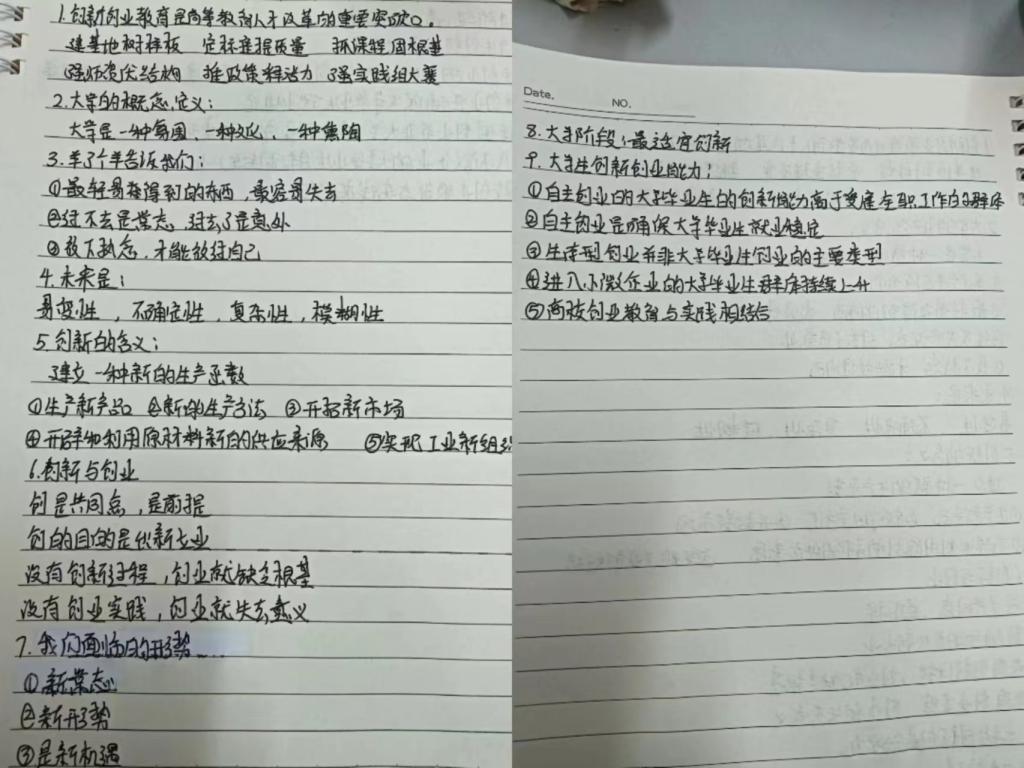 1.创新创业教育是高等教育人才改革的重要突破口。
建基地树样板 定标准提质量 抓课程固根基
强师资优结构 推政策释活力 强实践组大赛
2.大学的概念、定义：
大学是一种氛围，一种文化，一种熏陶
3.羊了个羊告诉我们：
①最轻易获得到的东西，最容易失去
②过不去是常态，过去了是意外
③放下执念，才能放过自己
4.未来是：
易变性，不确定性，复杂性，模糊性
5.创新的含义：
建立一种新的生产函数
①生产新产品 ②新的生产方法 ③开拓新市场
④开辟和利用原材料新的供应来源 ⑤实现工业新组织
6.创新与创业
创是共同点，是前提
创的目的是创新立业
没有创新过程，创业就缺乏根基
没有创业实践，创业就失去意义
7.我们面临的形势……
①新常态
②新形势
③是新机遇
Date. NO.
8.大学阶段：最适宜创新
9.大学生创新创业能力：
①自主创业的大学毕业生的创新能力高于受雇全职工作的群体
②自主创业是确保大学毕业生就业稳定
③生存型创业并非大学毕业生创业的主要类型
④进入小微企业的大学毕业生群体持续上升
⑤高校创业教育与实践相结合